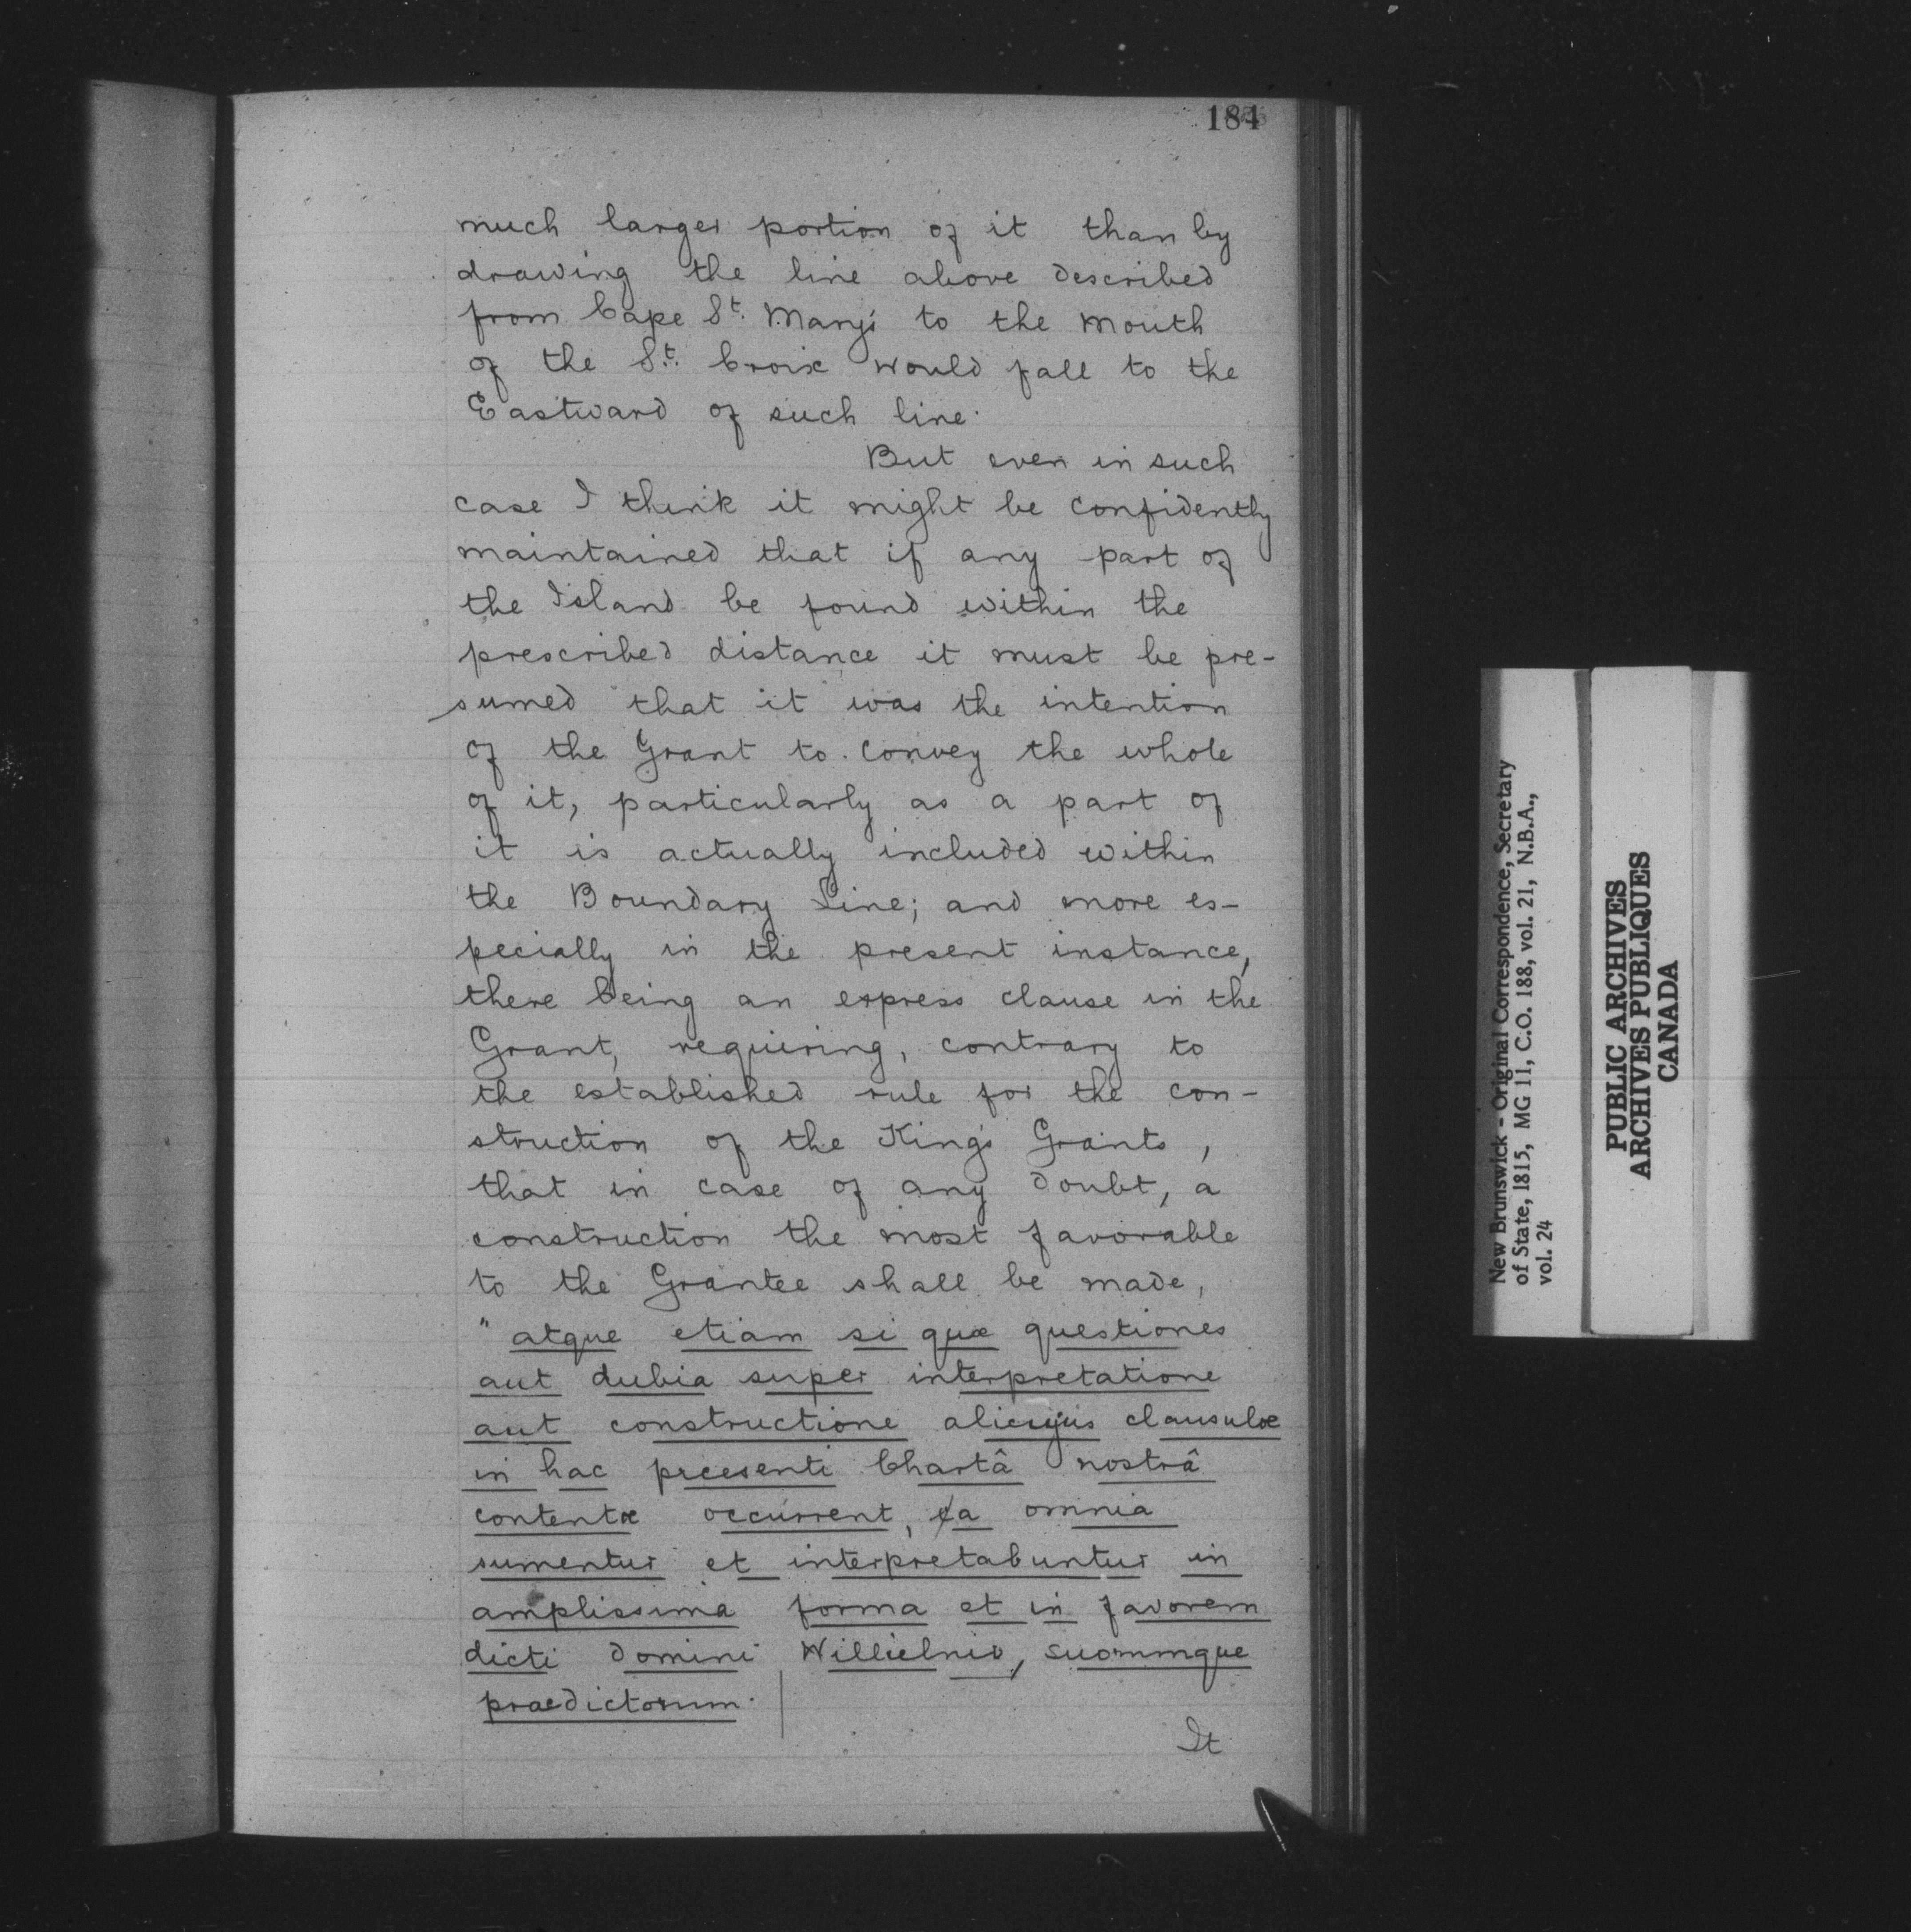 184
much larger portion of it than by
drawing the line above described
from Cape St. Mary's to the mouth
of the St. Croix would fall to the
Eastward of such line.
But even in such
case I think it might be confidently
maintained that if any part of
the Island be found within the
prescribed distance it must be pre-
sumed that it was the intention
of the Grant to convey the whole
of it, particularly as a part of
it is actually included within
the Boundary Line; and more es-
pecially in the present instance,
there being an express clause in the
Grant, requiring, contrary to
the established rule for the con-
struction of the King's Grants,
that in case of any doubt, a
construction the most favorable
to the Grantee shall be made,
"atque etiam si quæ questiones
aut dubia super interpretatione
aut constructione alicujus clausulæ
in hac præsenti Chartâ nostrâ
contentæ occurrent, ea omnia
sumentur et interpretabuntur in
amplissima forma et in favorem
dicti Domini Willielmi, suorumque
praedictorum.
It
New Brunswick - Original Correspondence, Secretary
of State, 1815, MG 11, C.O. 188, vol. 21, N.B.A.,
vol. 24
PUBLIC ARCHIVES
ARCHIVES PUBLIQUES
CANADA